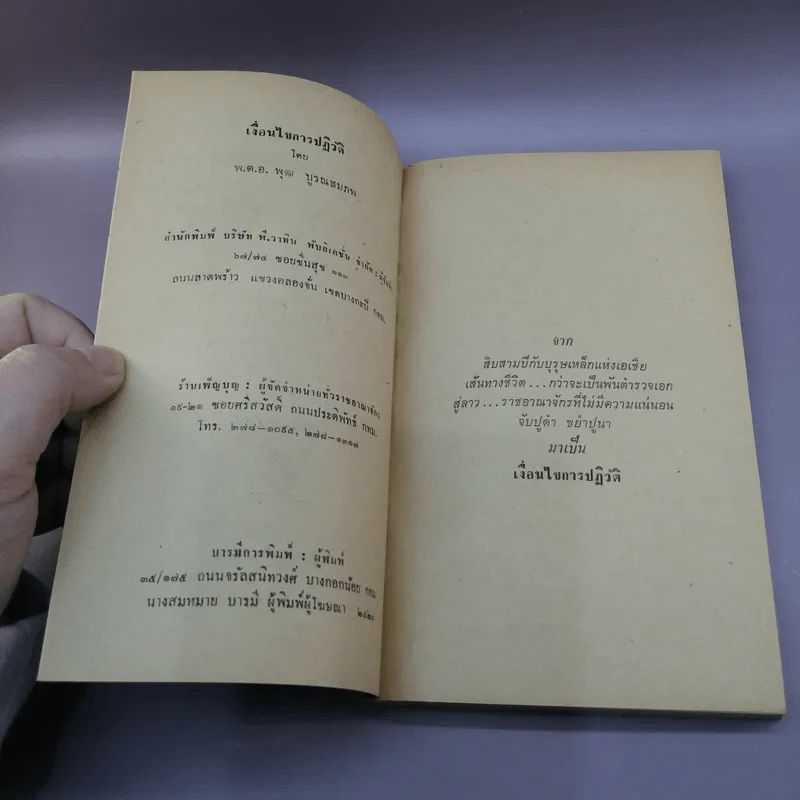 เงื่อนไขการปฏิวัติ
โดย
พ.ต.อ. พุฒ บูรณสมภพ
สำนักพิมพ์ บริษัท พี.วาทิน พับลิเคชั่น จำกัด : ผู้จัดพิมพ์
๖๗/๗๔ ซอยชื่นสุข
ถนนลาดพร้าว แขวงคลองจั่น เขตบางกะปิ กทม.
ร้านเพ็ญบุญ : ผู้จัดจำหน่ายทั่วราชอาณาจักร
๑๙-๒๑ ซอยศรีสวัสดิ์ ถนนประดิพัทธ์ กทม.
โทร. ๒๗๘-๑๐๙๕, ๒๗๘-๑๓๑๗
บารมีการพิมพ์ : ผู้พิมพ์
๓๕/๑๗๕ ถนนจรัลสนิทวงศ์ บางกอกน้อย กทม.
นางสมหมาย บารมี ผู้พิมพ์ผู้โฆษณา
จาก
สิบสามปีกับบุรุษเหล็กแห่งเอเซีย
เส้นทางชีวิต...กว่าจะเป็นพันตำรวจเอก
สู่ลาว...ราชอาณาจักรที่ไม่มีความแน่นอน
จับปูดำ ขยำปูนา
มาเป็น
เงื่อนไขการปฏิวัติ